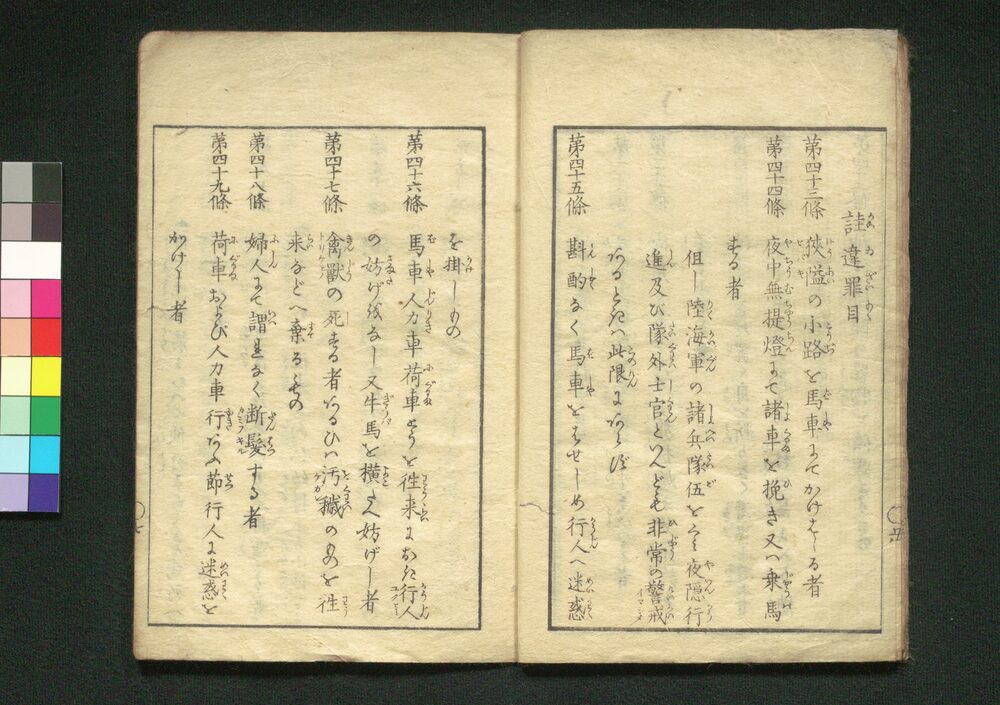 詿違罪目
第四十三條 狹隘の小路を馬車にてかけはしる者
第四十四條 夜中無提燈にて諸車を挽き又ハ乗馬
する者
但し陸海軍の諸兵隊伍をくミ夜隠行
進及び隊外士官といへども非常の警戒
あるときハ此限にあらず
第四十五條 斟酌なく馬車をはせしめ行人へ迷惑
を掛しもの
第四十六條 馬車人力車荷車とうを徃来におき行人
の妨げをなし又牛馬を横たへ妨げし者
第四十七條 禽獣の死する者あるひハ汚穢のものを徃
来などへ棄るもの
第四十八條 婦人にて謂れなく断髪する者
第四十九條 荷車および人力車行あふ節行人に迷惑を
かけし者